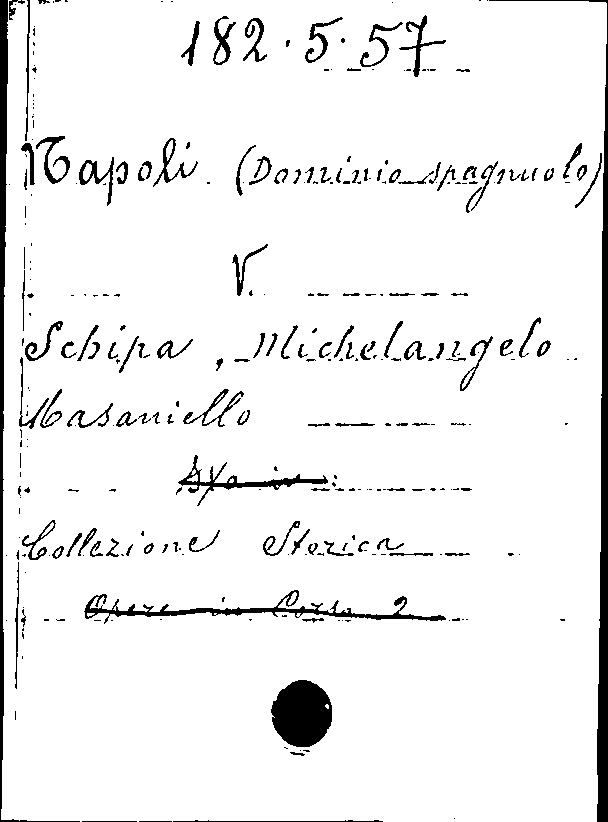 182.5.57
Napoli (Dominio spagnuolo)
V.
Schipa, Michelangelo
Masaniello
in:
Collezione Storica
Opere in Corso 2